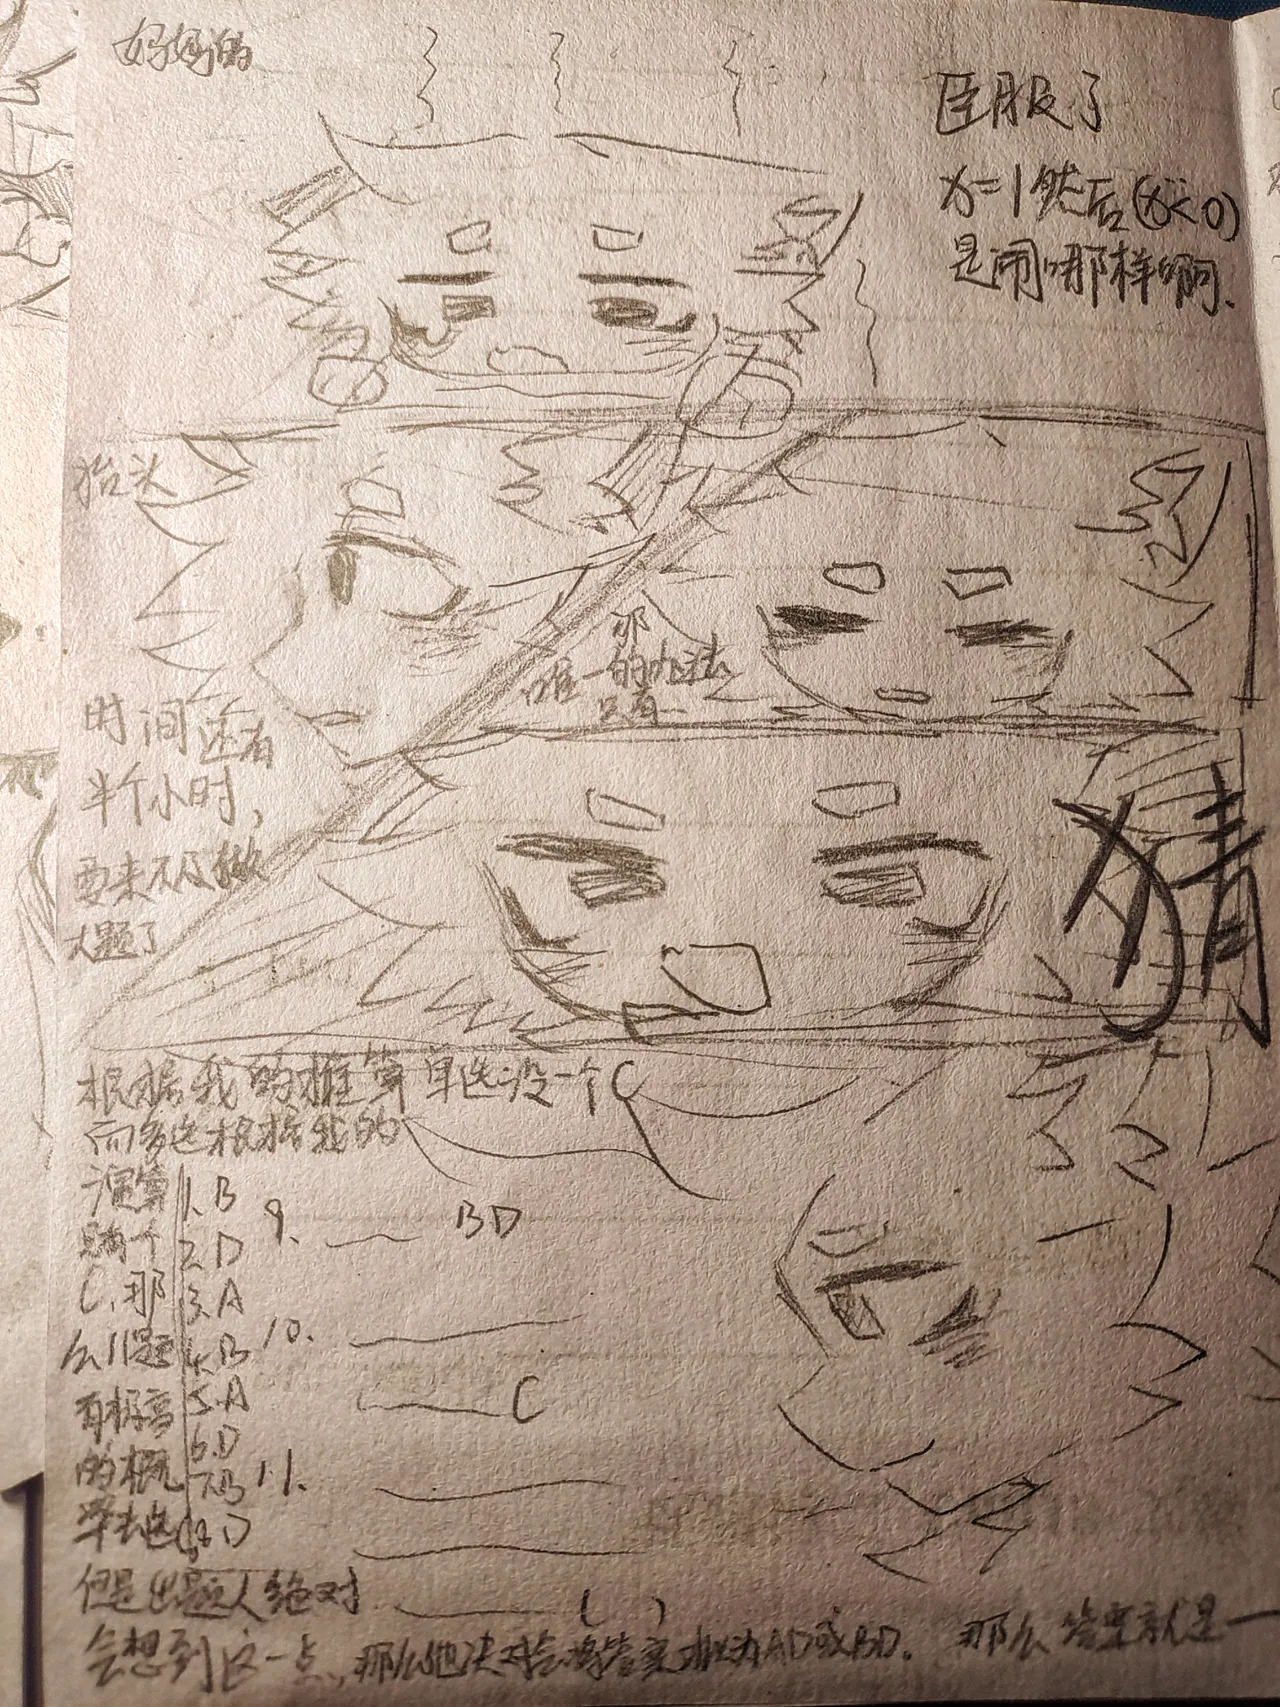 妈妈的
臣服了
x=1然后(x<0)
是闹哪样啊、
抬头
那
唯一的办法
只有
时间还有
半个小时,
要来不及做
大题了
猜
根据我的推算单选没一个C
而多选根据我的
演算
只有个
C、那
么11题
有极高
的概
率去选C
1、B
2、D
3、A
4、B
5、A
6、D
7、B
8、D
9.
BD
10.
C
11.
( )
但是出题人绝对
会想到这一点、那么他决对会将答案拟为AD或BD.
那么答案就是一